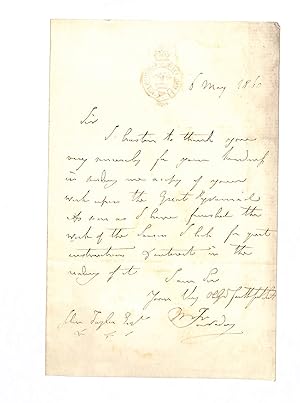 6 May 186
Sir
I hasten to thank you
very sincerely for your kindness
in sending me a copy of your
work upon the Great Pyramid
As soon as I have finished the
work of the I hope for great
instruction & interest in the
reading of it.
I am Sir
Yours Very faithfully
John Taylor Esqre